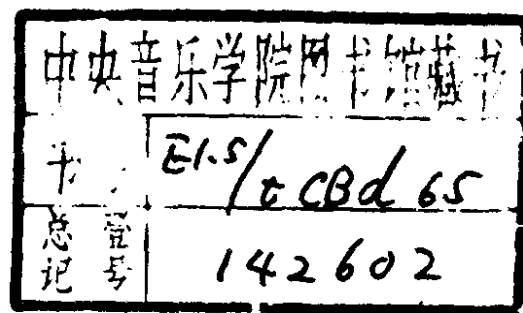 中央音乐学院图书馆藏书
书号 E1.5/tCBd 65
总登记号 142602